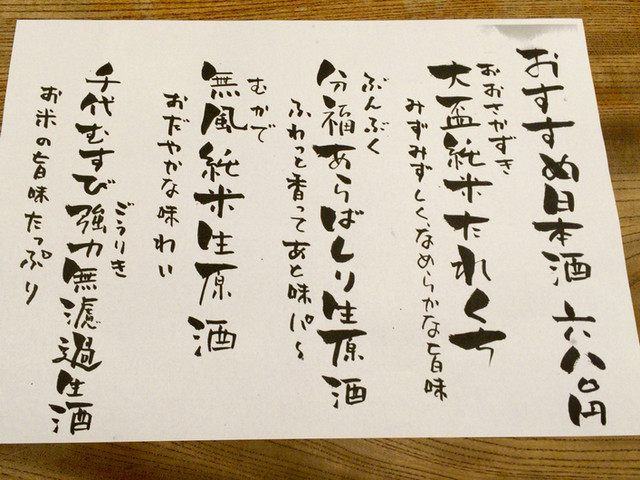 おすすめ日本酒 六八〇円
おおさかずき
大盃純米たれくち
みずみずしく、なめらかな旨味
ぶんぶく
分福あらばしり生原酒
ふわっと香ってあと味パ〜
むかで
無風純米生原酒
おだやかな味わい
千代むすび強力無濾過生酒
ごうりき
お米の旨味たっぷり